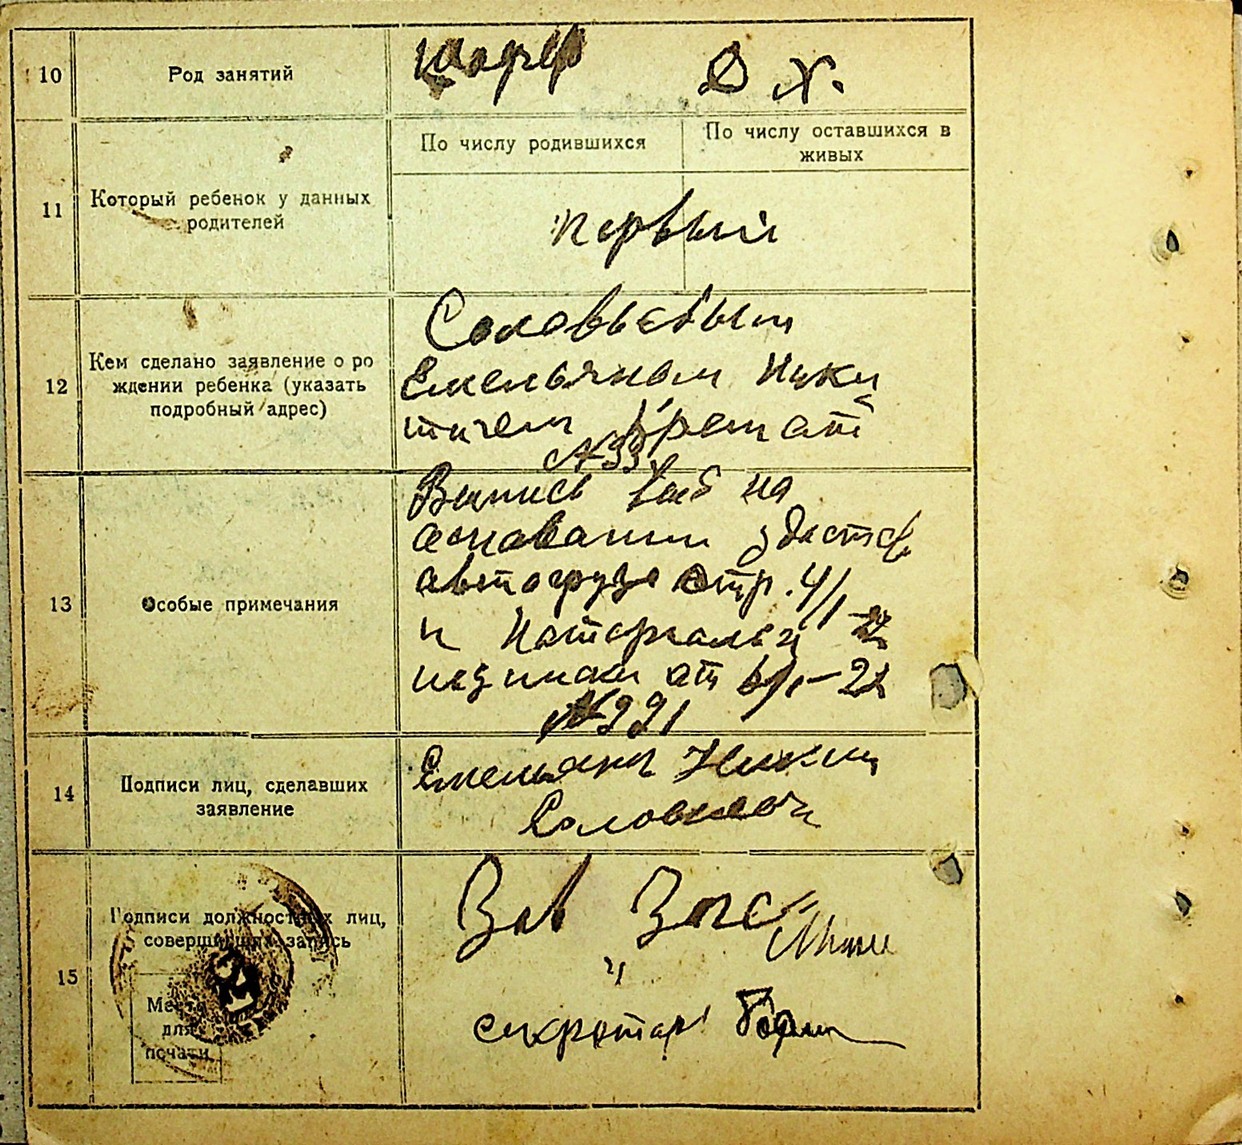 10
Род занятий
шофер Д Х.
11
Который ребенок у данных
родителей
По числу родившихся
По числу оставшихся в
живых
первый
12
Кем сделано заявление о ро
ждении ребенка (указать
подробный адрес)
Соловьевым
Емельяном Ники
тичем
№33
13
Особые примечания
Выпись на
основании
автогруза отр. 4/1-
и Нотариальй
от 6/1-22
№991
14
Подписи лиц, сделавших
заявление
Емельян Никит
15
Подписи должностных лиц,
совершивших запись
Место
для
печати
Зав Загс
и
секретарь